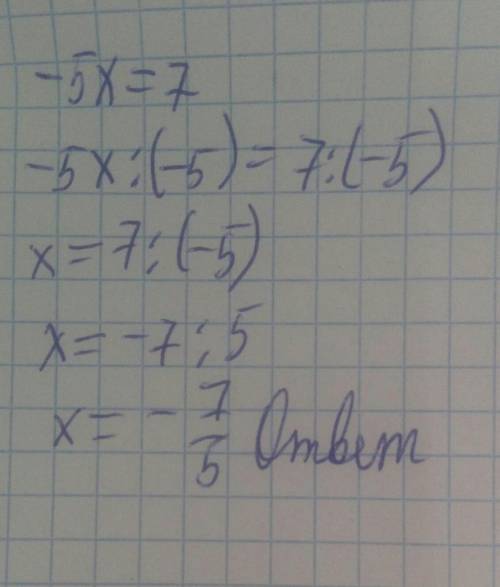 -5x=7
-5x:(-5)=7:(-5)
x=7:(-5)
x=-7:5
x=-7/5 Ответ